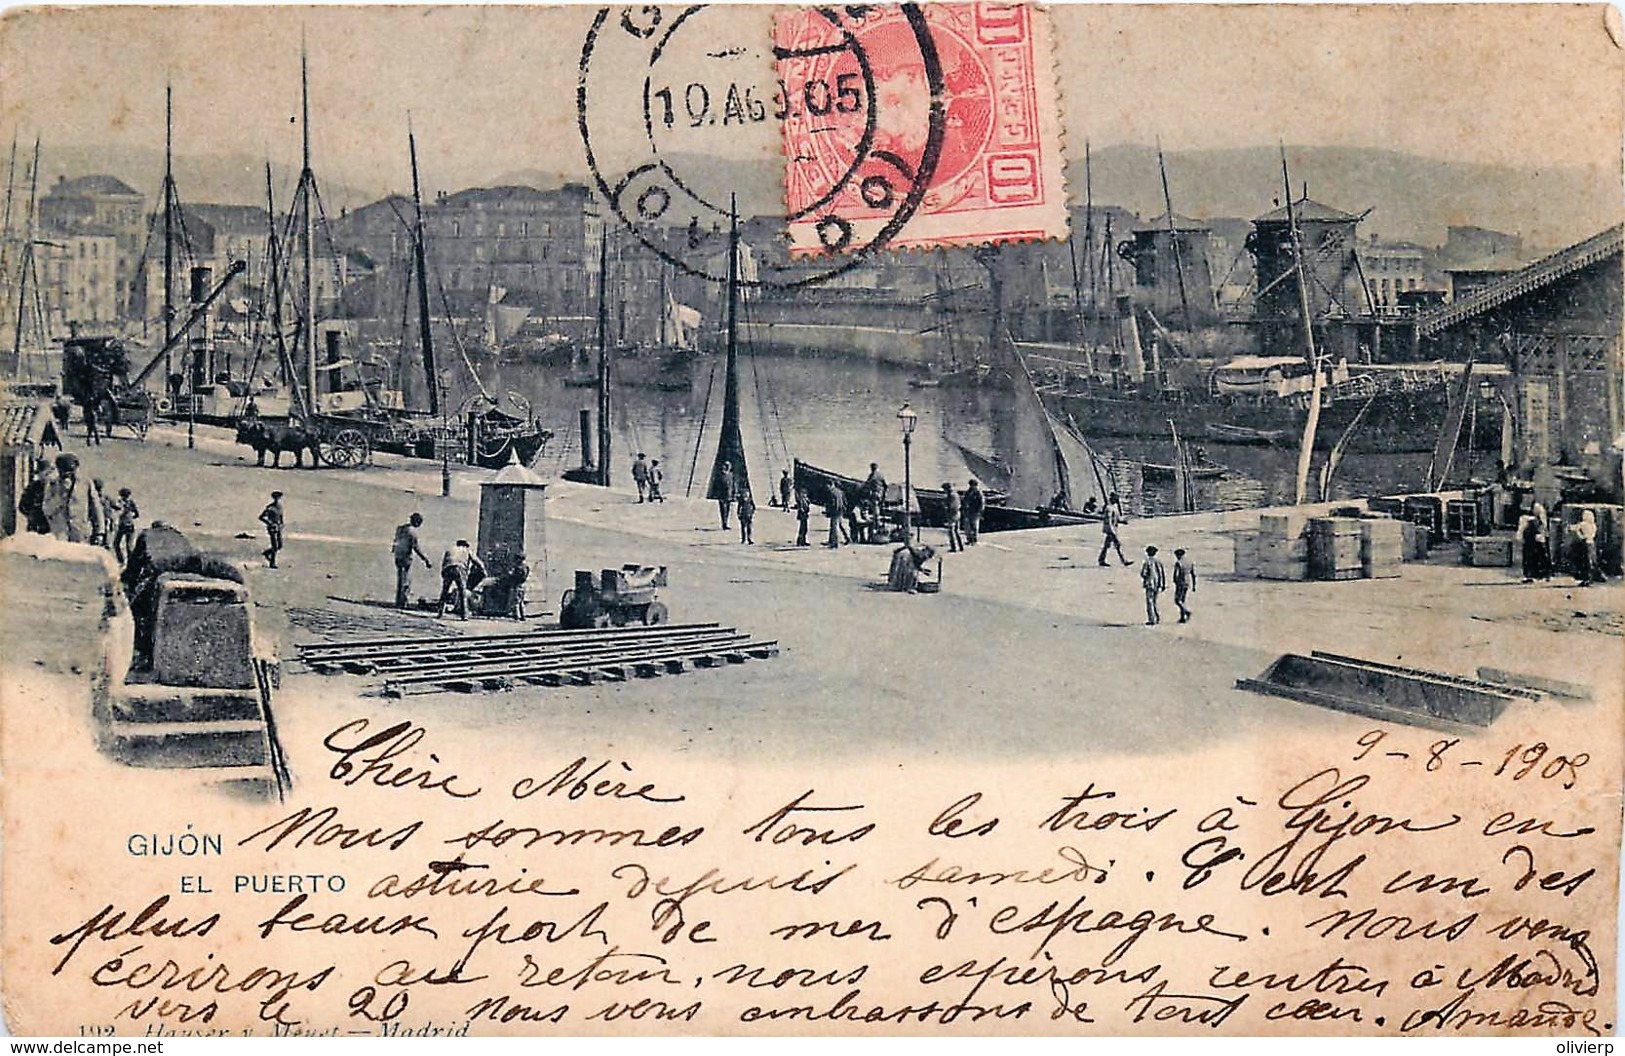 10.AGO.05
10 CENT 10
(OVIEDO)
9-8-1905
Chère Mère
Nous sommes tous les trois à Gijon en
GIJÓN
EL PUERTO
asturie depuis samedi. C'est un des
plus beaux port de mer d'espagne. Nous vous
écrirons au retour, nous espérons rentrer à Madrid
vers le 20 Nous vous embrassons de tout cœur. Amande.
192 Hauser y Menet.—Madrid
www.delcampe.net
olivierp